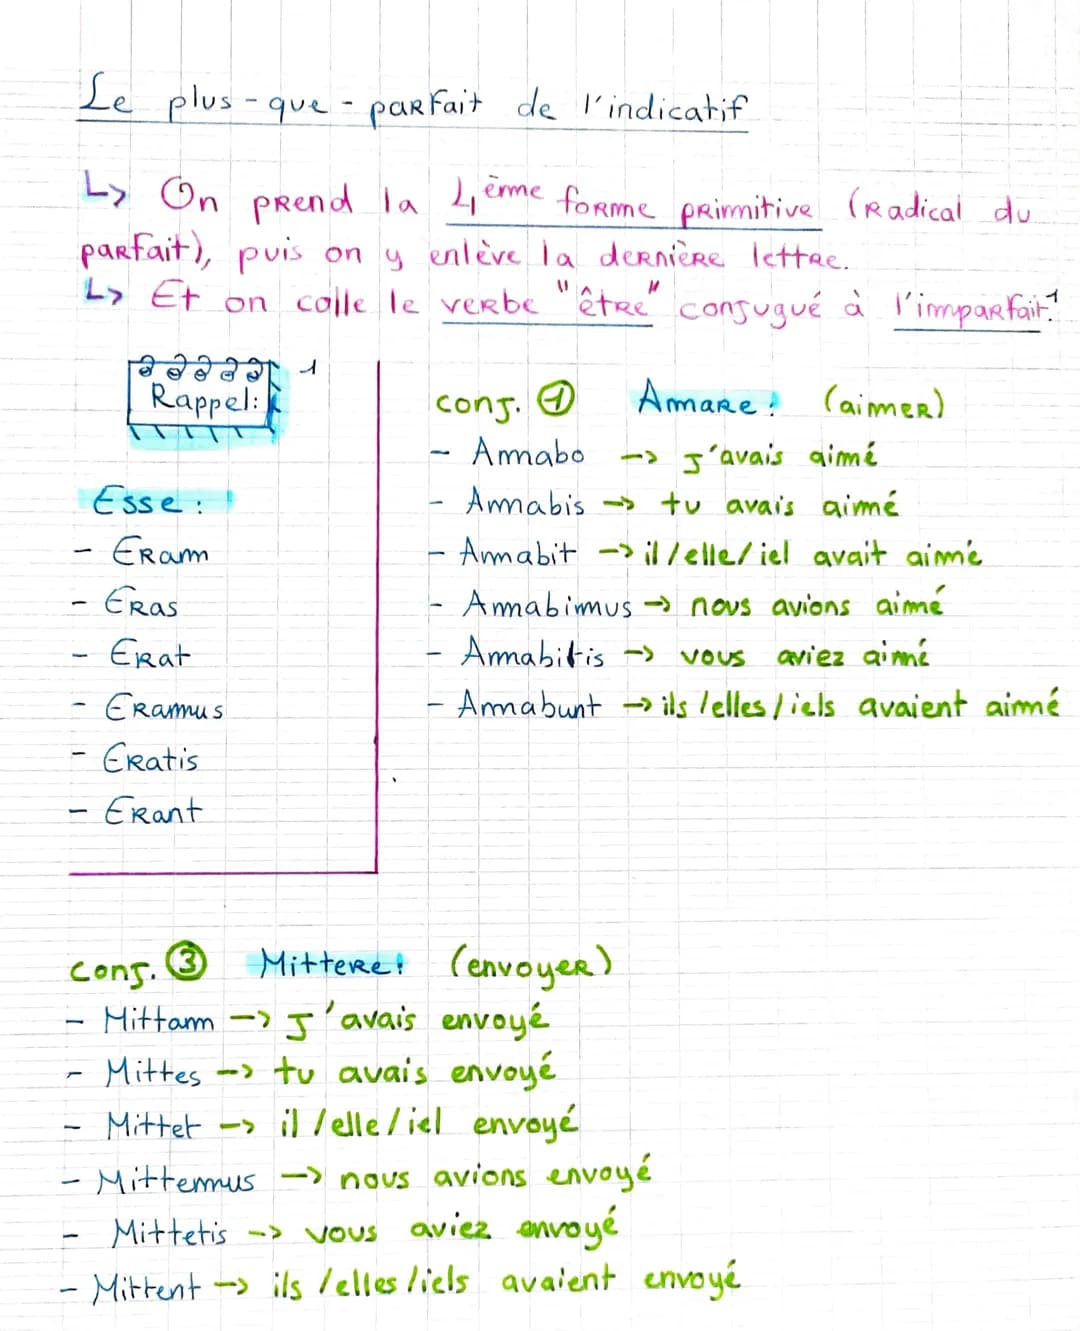 Le plus-que-parfait de l'indicatif
↳ On prend la 4ème forme primitive (Radical du
parfait), puis on y enlève la dernière lettre.
↳ Et on colle le verbe "être" conjugué à l'imparfait.1
Rappel: 1
Esse:
- Eram
- Eras
- Erat
- Eramus
- Eratis
- Erant
conj. ① Amare: (aimer)
- Amabo -> j'avais aimé
- Amabis -> tu avais aimé
- Amabit -> il/elle/iel avait aimé
- Amabimus -> nous avions aimé
- Amabitis -> vous aviez aimé
- Amabunt -> ils/elles/iels avaient aimé
conj. ③ Mittere: (envoyer)
- Mittam -> j'avais envoyé
- Mittes -> tu avais envoyé
- Mittet -> il/elle/iel envoyé
- Mittemus -> nous avions envoyé
- Mittetis -> vous aviez envoyé
- Mittent -> ils/elles/iels avaient envoyé